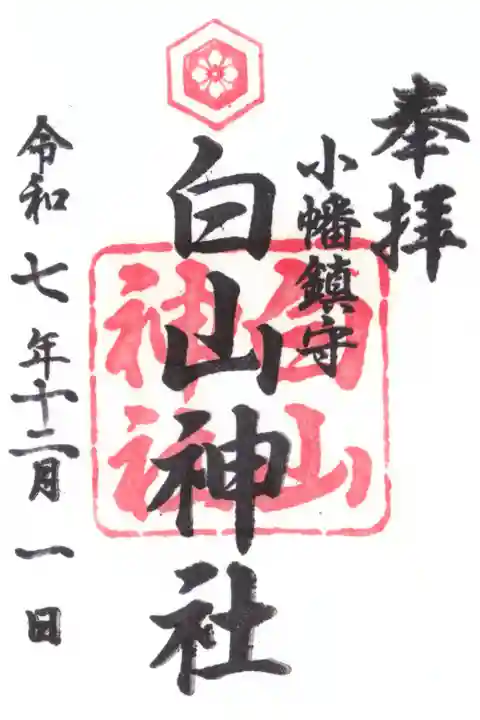 奉拝
小幡鎮守
白山神社
白山
神社
令和七年十二月一日